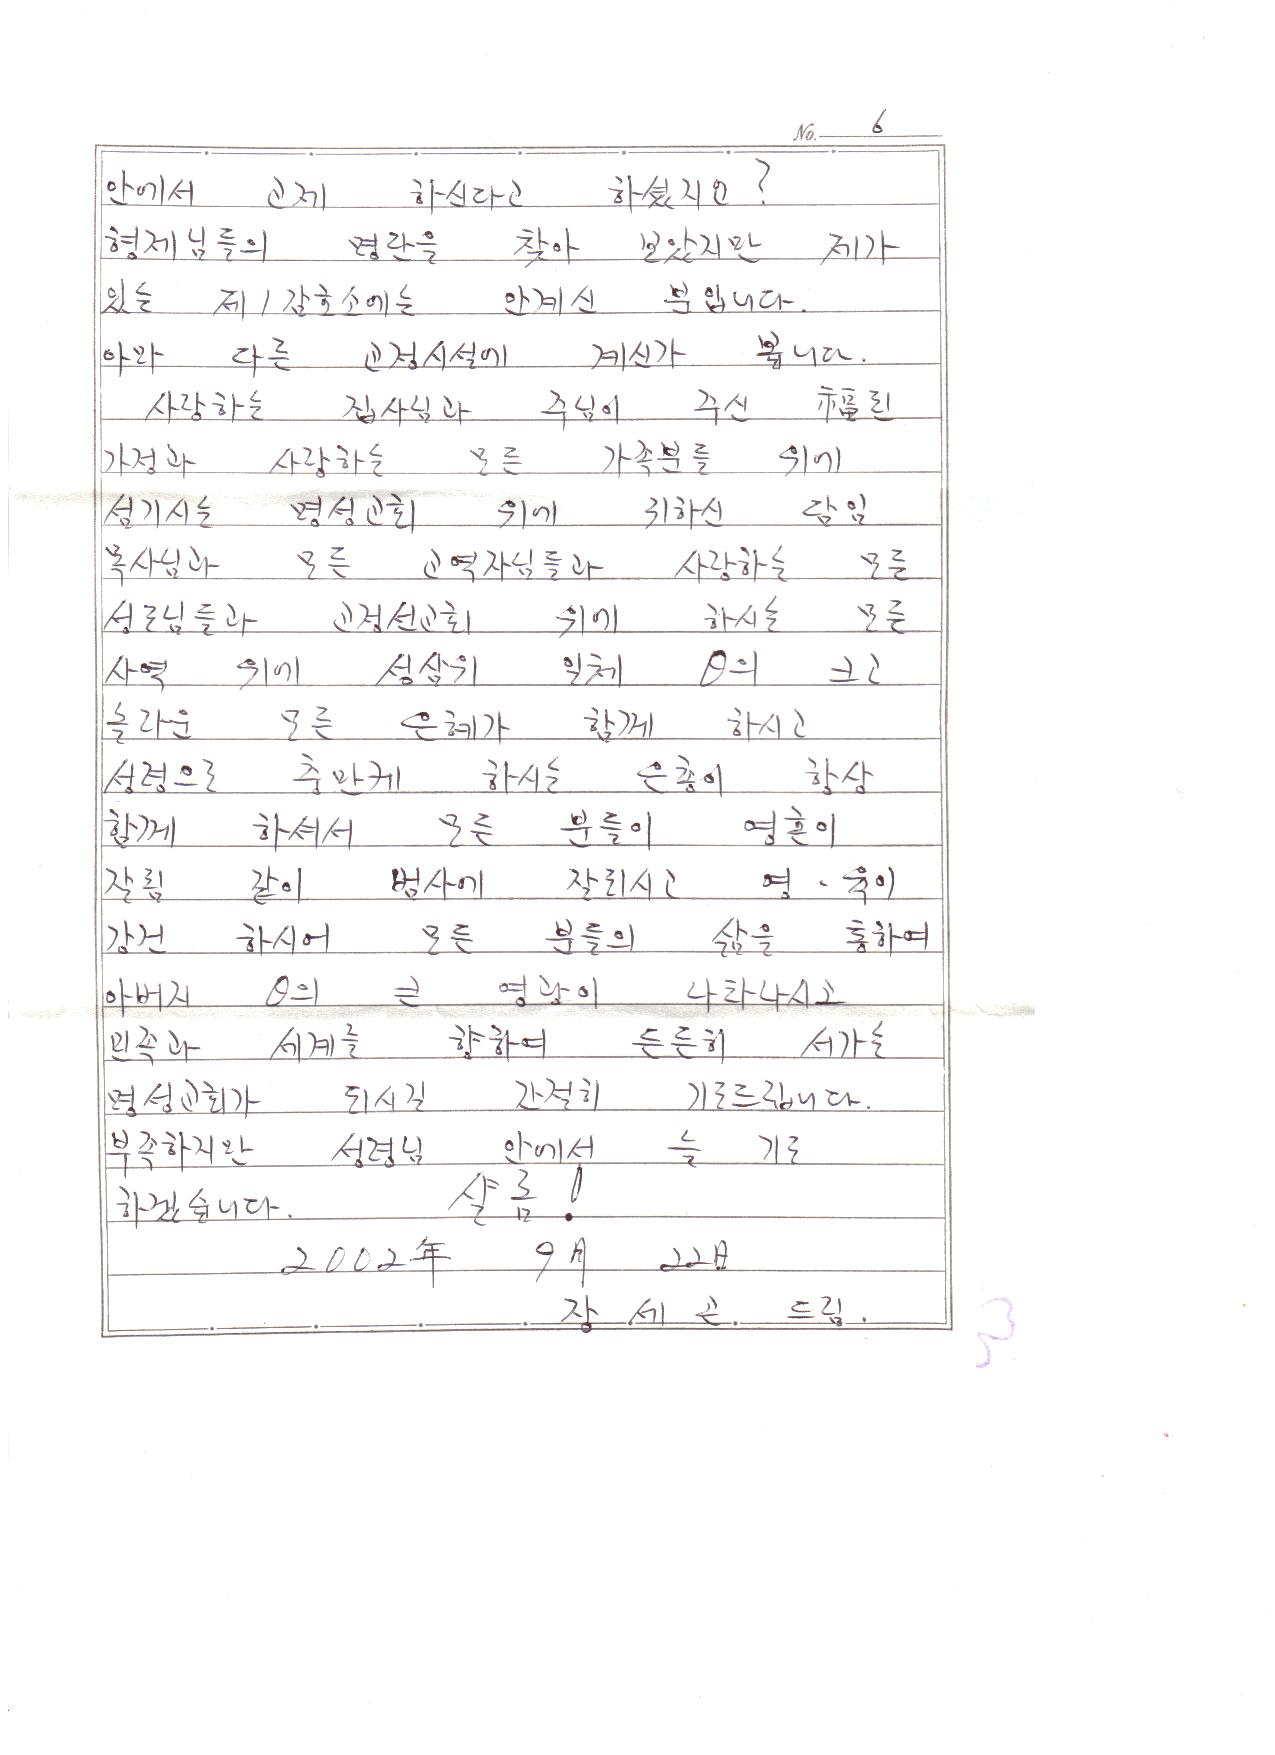 No. 6
안에서 교제 하신다고 하셨지요?
형제님들의 명단을 찾아 보았지만 제가
있는 제1감호소에는 안계신 부입니다.
아마 다른 교정시설에 계신가 봅니다.
사랑하는 집사님과 주님이 주신 福된
가정과 사랑하는 모든 가족분들 위에
섬기시는 명성교회 위에 귀하신 담임
목사님과 모든 교역자님들과 사랑하는 모든
성도님들과 교정선교회 위에 하시는 모든
사역 위에 성삼위 일체 θ의 크고
놀라운 모든 은혜가 함께 하시고
성령으로 충만케 하시는 은총이 항상
함께 하셔서 모든 분들이 영혼이
잘됨 같이 범사에 잘되시고 영·육이
강건 하시어 모든 분들의 삶을 통하여
아버지 θ의 큰 영광이 나타나시고
민족과 세계를 향하여 든든히 서가는
명성교회가 되시길 간절히 기도드립니다.
부족하지만 성령님 안에서 늘 기도
하겠습니다. 샬롬!
2002年 9月 22日
장 세 곤 드림.